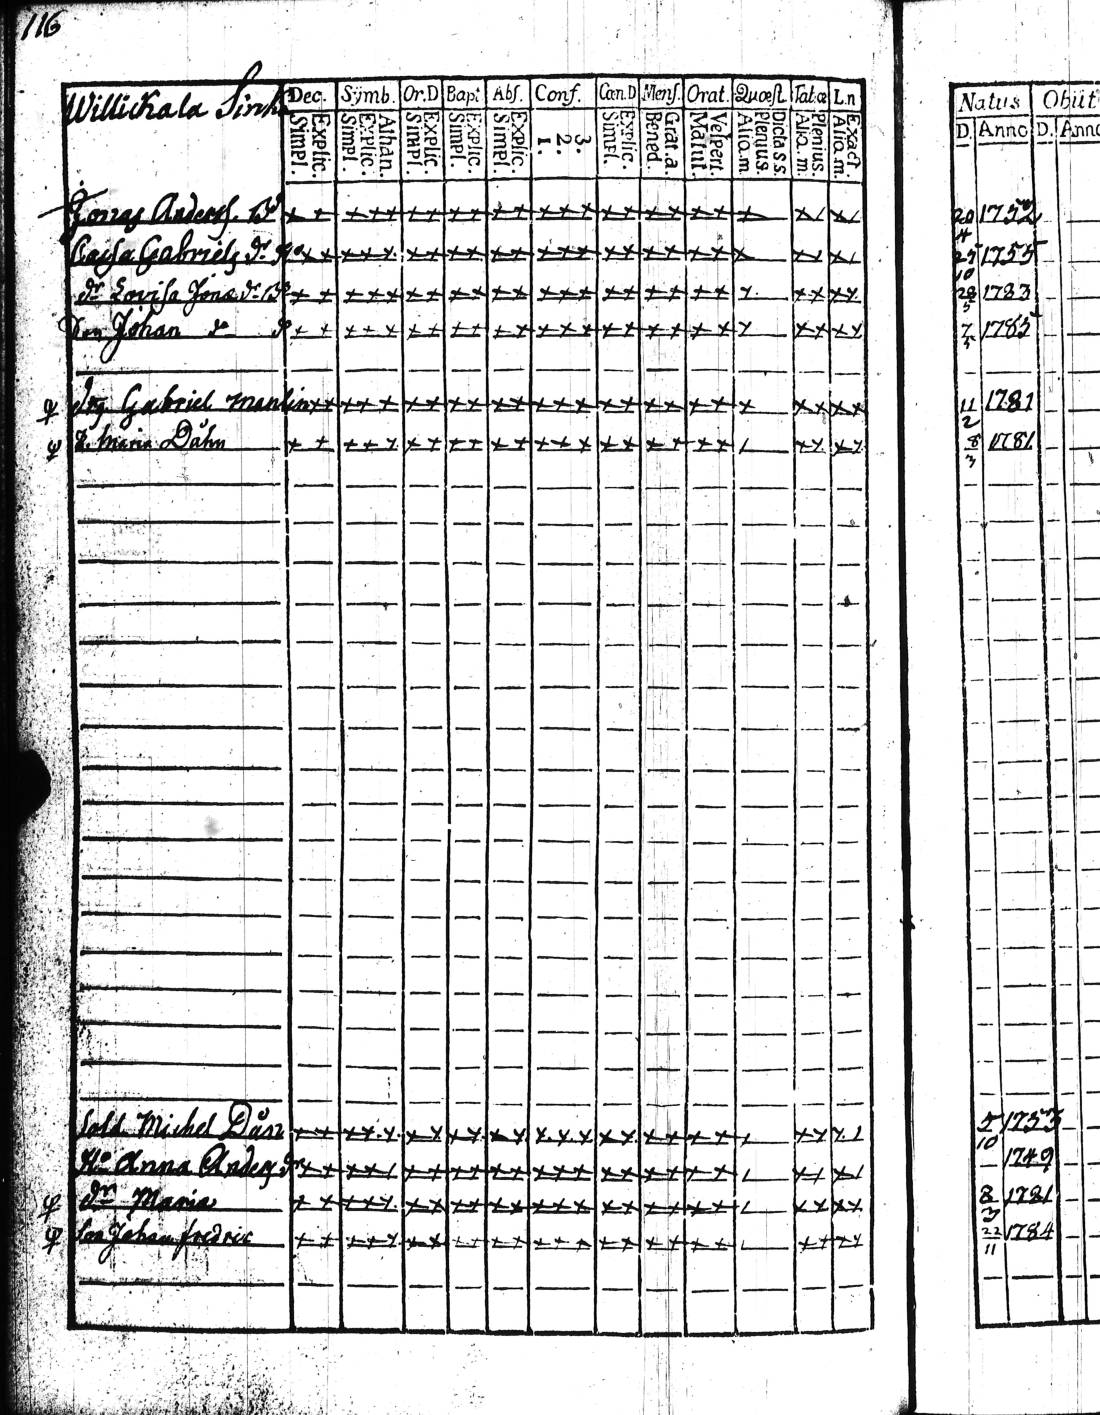 116
Willickala Sinka
Dec. Sÿmb. Or.D Bapt Abs. Conf. Cœn.D Mens. Orat. Quœst. Tab.œ L.n
Explic. Simpl. Athan. Explic. Simpl. Explic. Simpl. Explic. Simpl. Explic. Simpl. 3. 2. 1. Explic. Simpl. Grat.a. Bened. Vespert. Matut. Dicta S S. Plenius. Aliq.m Plenius. Aliq.m. Exact. Aliq.m.
Natus Obiit
D. Anno D. Anno
Jonas Anders. Bd 20/4 1752
Cajsa Gabriels dr Ho 25/10 1755
dr Lovisa Jonæ dr 28/5 1783
Son Johan 7/5 1785
φ Drg Gabriel Manlin 11/2 1781
φ Maria Dåhn 8/3 1781
Sold. Michel Dån 5/10 1753
Ho Anna Anders dr 1749
φ dr Maria 8/3 1781
φ Son Johan fredric 22/11 1784